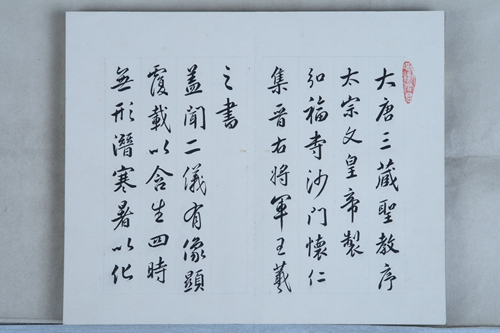 大唐三藏聖教序
太宗文皇帝製
弘福寺沙門懷仁
集晉右將軍王羲
之書
蓋聞二儀有像顯
覆載以含生四時
無形潛寒暑以化